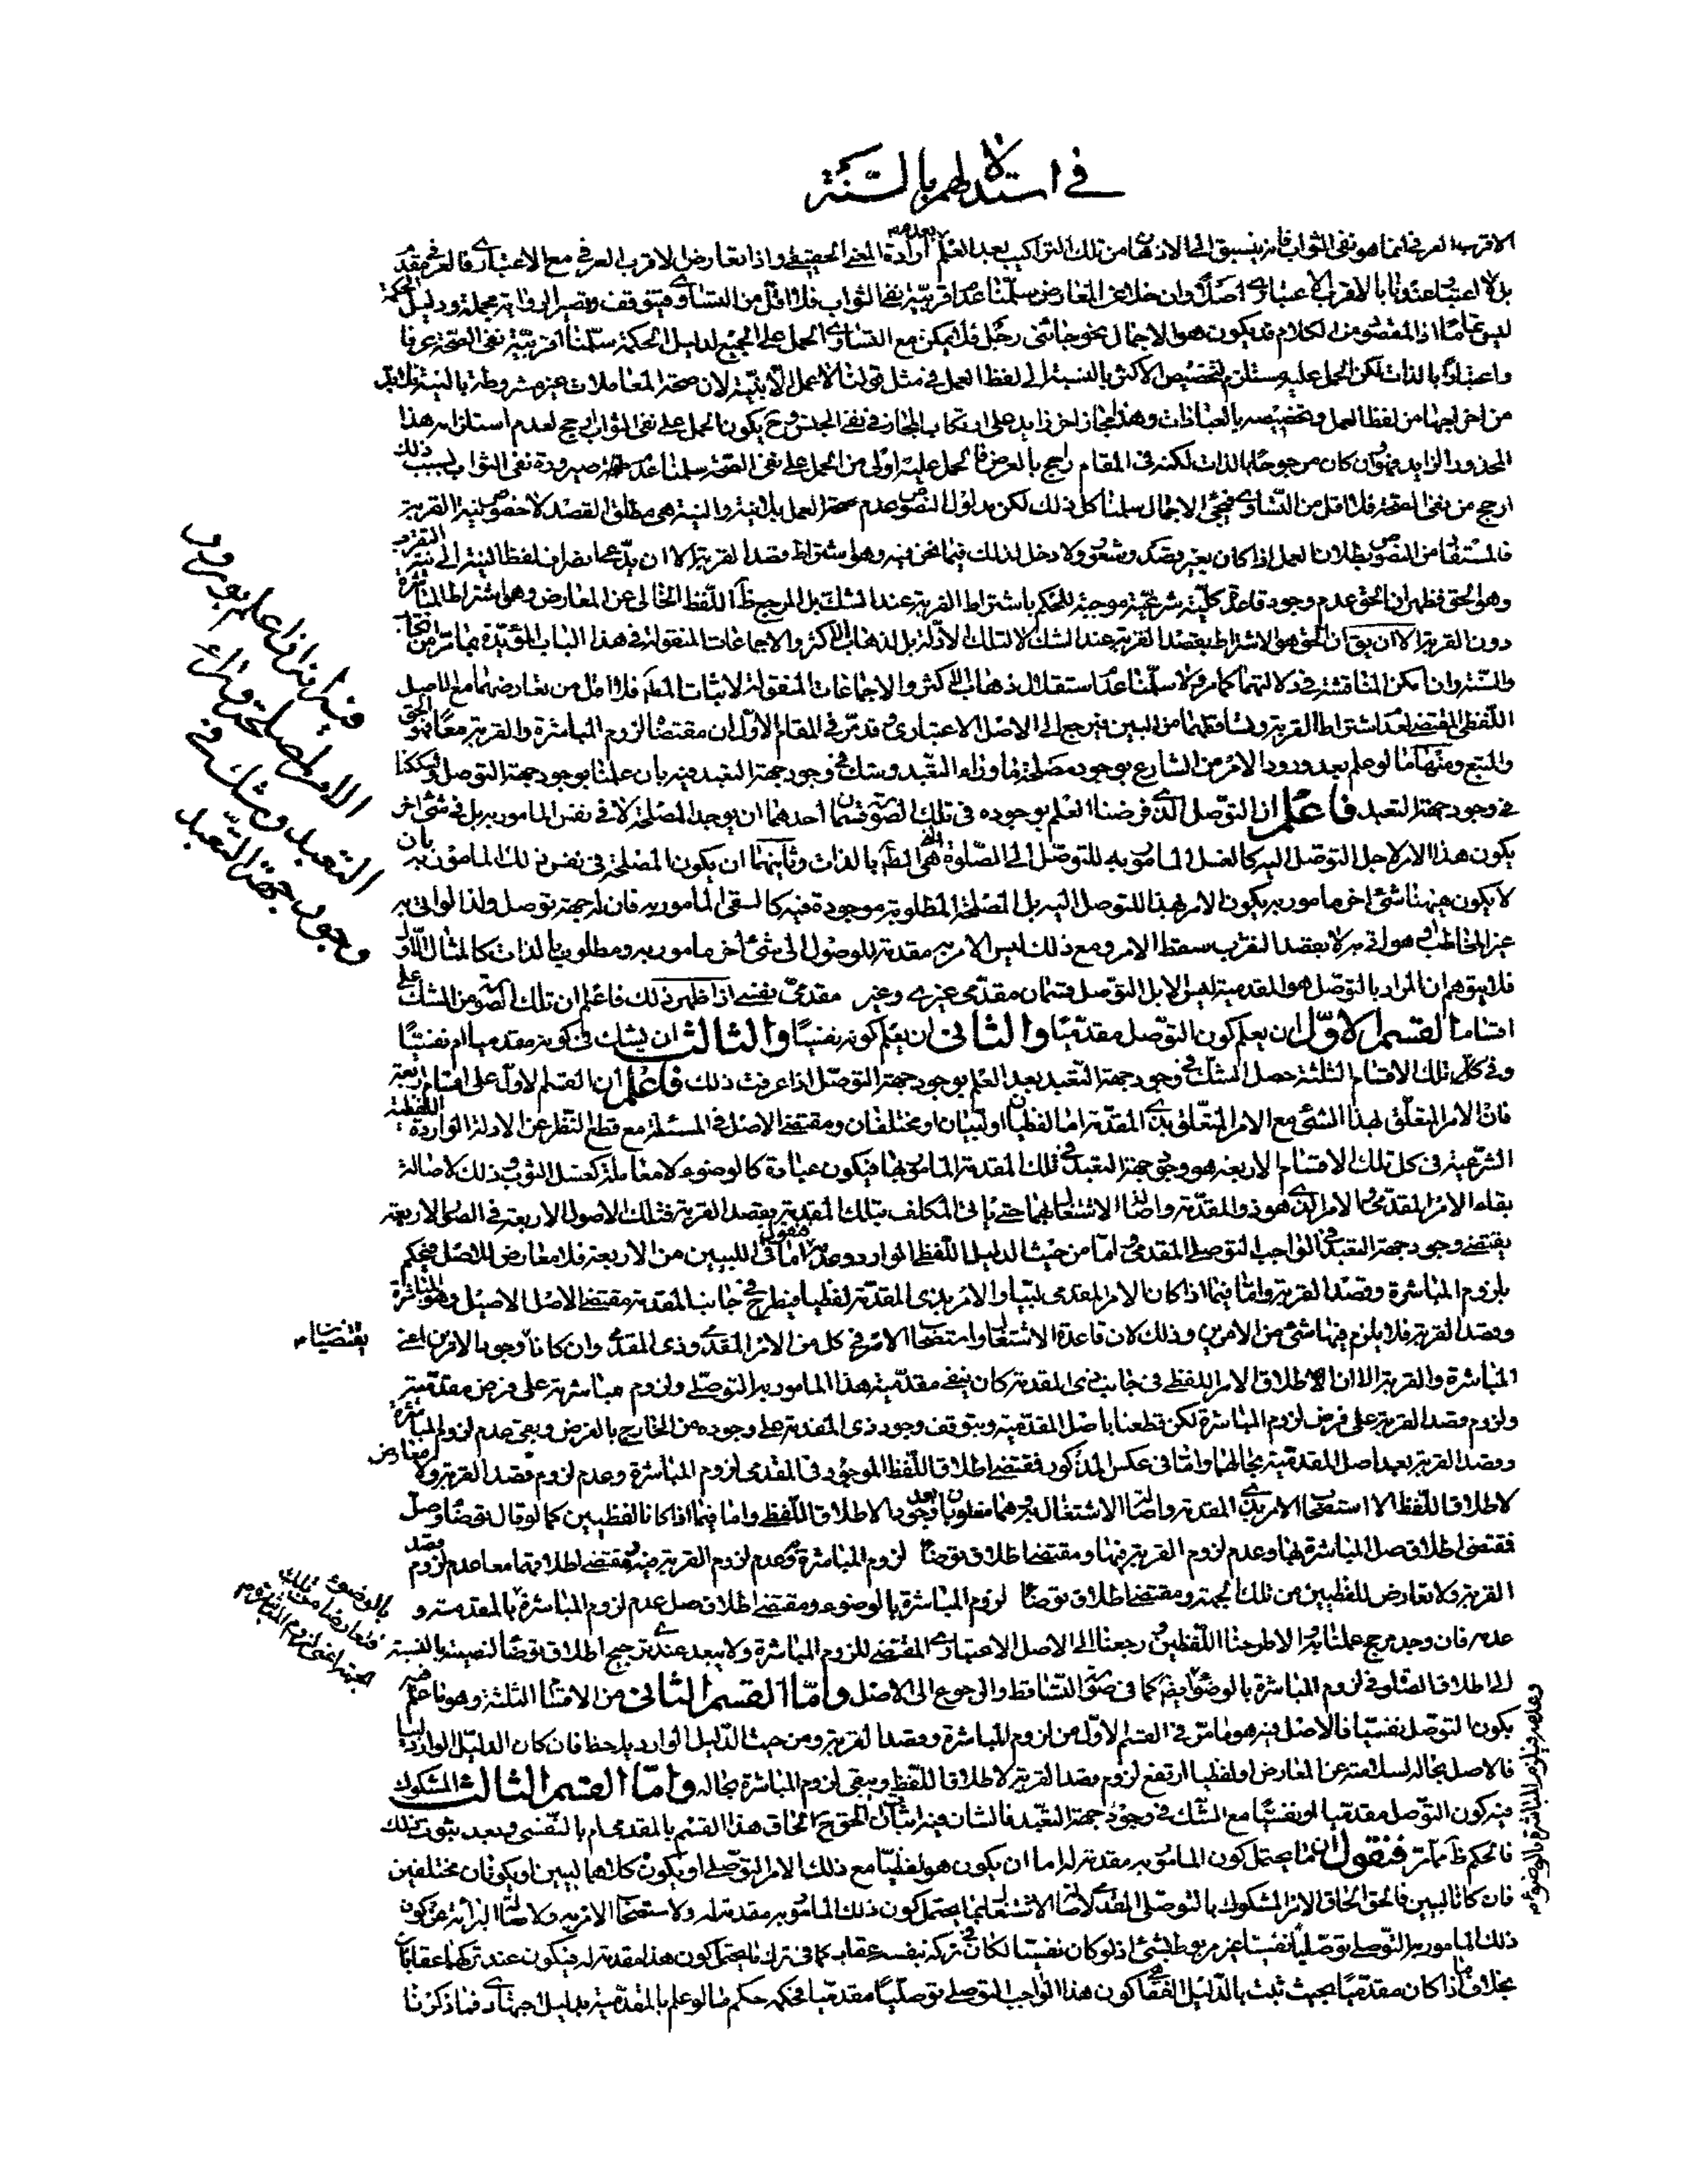 في استدلالهم بالسنة
الاقرب العرفي انما هو نفي الثواب فانه ينسبق الى الاذهان من تلك التراكيب بعد العلم بعدم ارادة المعنى الحقيقي واذا تعارض الاقرب العرفي مع الاعتباري فالعرفي مقدم
بل لا اعتبار عندنا بالاقرب الاعتباري اصلا وان خلا عن المعارض سلمنا عدم اقربية نفي الثواب فلا اقل من التساوي فيتوقف ويصير الرواية مجملة ودليل الحكمة
ليس تماما اذ المقصود من الكلام قد يكون هو الاجمال نحو جائني رجل فلا يمكن مع التساوي الحمل على الجميع لدليل الحكمة سلمنا اقربية نفي الصحة عرفا
واعتبارا بالذات لكن الحمل عليه مستلزم لتخصيص الاكثر بالنسبة الى لفظ العمل في مثل قولنا لا عمل الا بنية لان صحة المعاملات غير مشروطة بالنية فلا بد
من اخراجها من لفظ العمل وتخصيصه بالعبادات وهذا مجاز اخر زايد على ارتكاب المجاز في نفي الجنس وح يكون الحمل على نفي الثواب ارجح لعدم استلزامه هذا
المحذور الزايد فهو وان كان مرجوحا بالذات لكنه في المقام راجح بالعرض فالحمل عليه اولى من الحمل على نفي الصحة سلمنا عدم صيرورة نفي الثواب بسبب ذلك
ارجح من نفي الصحة فلا اقل من التساوي فيجئ الاجمال سلمنا كل ذلك لكن مدلول النصوص عدم صحة العمل بلا نية والنية هي مطلق القصد لا خصوص نية القربة
فالمستفاد من النصوص بطلان العمل اذا كان بغير قصد وشعور ولا دخل لذلك فيما نحن فيه وهو اشتراط قصد القربة الا ان يدعى انصراف لفظ النية الى نية التقرب
وهو الحق فظهر ان الحق عدم وجود قاعدة كلية شرعية موجبة للحكم باشتراط القربة عند الشك بل المرجح ظاهر اللفظ الخالي عن المعارض وهو اشتراط المباشرة
دون القربة الا ان يق ان الحق هو الاشتراط بقصد القربة عند الشك لا لتلك الادلة بل لذهاب الاكثر والاجماعات المنقولة في هذا الباب المؤيدة بما مر من الكتاب
والسنة وان امكن المناقشة في دلالتهما كما مر ولا سلمنا عدم استقلال ذهاب الاكثر والاجماعات المنقولة لاثبات المطلب فلا اقل من تعارضهما مع الاصل
اللفظي المقتضي لعدم اشتراط القربة وتساقطهما من البين فيرجع الى الاصل الاعتباري وقد مر في المقام الاول ان مقتضاه لزوم المباشرة والقربة معا فهو الحق
والمتبع ومنها ما لو علم بعد ورود الامر من الشارع بوجود مصلحة ما وراء التعبد وشك في وجود جهة التعبد فيه بان علمنا بوجود جهة التوصل وشككنا
في وجود جهة التعبد فاعلم ان التوصل الذي فرضنا العلم بوجوده في تلك الصورة قسمان احدهما ان يوجد المصلحة لا في نفس المامور به بل في شئ اخر
يكون هذا الامر لاجل التوصل اليه كالغسل المامور به للتوصل الى الصلوة التي هي المط بالذات وثانيهما ان يكون المصلحة في نفس ذلك المامور به بان
لا يكون هيهنا شئ اخر مامور به يكون الامر بهذا للتوصل اليه بل المصلحة المطلوبة موجودة فيه كالسقي المامور به فان له جهة توصل ولذا لو اتى به
غير المخاطب او هو اتى به لا بقصد التقرب سقط الامر ومع ذلك ليس الامر به مقدمة للوصول الى شئ اخر مامور به ومطلوب بالذات كالمثال الاول
فلا يتوهم ان المراد بالتوصل هو المقدمية ليس الا بل التوصل قسمان مقدمي غيري وغير مقدمي نفسي اذا ظهر ذلك فاعلم ان تلك الصورة من الشك على
اقسام القسم الاول ان يعلم كون التوصل مقدميا والثاني ان يعلم كونه نفسيا والثالث ان يشك في كونه مقدميا ام نفسيا
وفي كل تلك الاقسام الثلثة حصل الشك في وجود جهة التعبد بعد العلم بوجود جهة التوصل اذا عرفت ذلك فاعلم ان القسم الاول على اقسام اربعة
فان الامر المتعلق بهذا الشئ مع الامر المتعلق بذي المقدمة اما لفظيان او لبيان او مختلفان ومقتضى الاصل في المسئلة مع قطع النظر عن الادلة الواردة اللفظية
الشرعية في كل تلك الاقسام الاربعة هو وجود جهة التعبد في تلك المقدمة المامور بها فيكون عبادة كالوضوء لا معاملة كغسل الثوب وذلك لاصالة
بقاء الامر المقدمي والامر الذي هو ذو المقدمة واصالة الاشتغال بهما حتى ياتي المكلف بتلك المقدمة بقصد القربة فتلك الاصول الاربعة في الصور الاربعة
يقتضي وجود جهة التعبد في الواجب التوصلي المقدمي واما من حيث الدليل اللفظي الوارد وعدمه فنقول اما في اللبيين من الاربعة فلا معارض للاصل فيحكم
بلزوم المباشرة وقصد القربة واما فيما اذا كان الامر المقدمي لبيا والامر بذي المقدمة لفظيا فيطرح في جانب المقدمة مقتضى الاصل الاصيل وهو المباشرة
وقصد القربة فلا يلزم فيها شئ من الامرين وذلك لان قاعدة الاشتغال واستصحاب الامر في كل من الامر المقدمي وذي المقدمي وان كانا يقتضيان وجوب الامرين اعني
المباشرة والقربة الا ان الاطلاق الامر اللفظي في جانب ذي المقدمة كان ينفي مقدمية هذا المامور به التوصلي ولزوم مباشرته على فرض مقدميته
ولزوم قصد القربة على فرض لزوم المباشرة لكن قطعنا باصل المقدمية ويتوقف وجود ذي المقدمة على وجوده من الخارج بالفرض وبقي عدم لزوم المباشرة
وقصد القربة بعد اصل المقدمية بحالهما واما في عكس المذكور فمقتضى اطلاق اللفظ الموجود في المقدمي لزوم المباشرة وعدم لزوم قصد القربة ولا معارض
لاطلاق اللفظ الا استصحاب الامر بذي المقدمة واصالة الاشتغال به وهما مغلوبان بعد وجود الاطلاق اللفظي واما فيما اذا كانا لفظيين كما لو قال توضا وصل
فمقتضى اطلاق صل المباشرة بها وعدم لزوم القربة فيها ومقتضى اطلاق توضا لزوم المباشرة وعدم لزوم القربة فيه فمقتضى اطلاقهما معا عدم لزوم قصد
القربة ولا تعارض للفظيين من تلك الجهة ومقتضى اطلاق توضا لزوم المباشرة بالوضوء ومقتضى اطلاق صل عدم لزوم المباشرة بالمقدمة و
عدمه فان وجد مرجح عملنا به والا طرحنا اللفظين و رجعنا الى الاصل الاعتباري المقتضي للزوم المباشرة ولا يبعد عندي ترجيح اطلاق توضا لنصيته بالنسبة
الى اطلاق الصلوة في لزوم المباشرة بالوضوء كما في صورة التساقط والرجوع الى الاصل واما القسم الثاني من الاقسام الثلثة وهو ما علم فيه
بكون التوصل نفسيا فالاصل فيه هو ما مر في القسم الاول من لزوم المباشرة وقصد القربة ومن حيث الدليل الوارد يلاحظ فان كان الدليل الوارد لبيا
فالاصل بحاله لسلامته عن المعارض او لفظيا ارتفع لزوم قصد القربة لاطلاق اللفظ ويبقى لزوم المباشرة بحاله واما القسم الثالث المشكوك
فيه كون التوصل مقدميا او نفسيا مع الشك في وجود جهة التعبد فالشان فيه اثبات ان الحق ح الحاق هذا القسم بالمقدمي ام بالنفسي وبعد ثبوت ذلك
فالحكم ظاهر مما مر فنقول ان ما يحتمل كون المامور به مقدمة له اما ان يكون هو لفظيا مع ذلك الامر التوصلي او يكون كلاهما لبيين او يكونان مختلفين
فان كانا لبيين فالحق الحاق الامر المشكوك بالتوصلي المقدمي لاصالة الاشتغال بما يحتمل كون ذلك المامور به مقدمة له ولاستصحاب الامر به ولاصالة البرائة عن كون
ذلك المامور به التوصلي توصليا نفسيا غير مربوط بشئ اذ لو كان نفسيا لكان في تركه بنفسه عقاب كما في ترك ما يحتمل كون هذا مقدمة له فيكون عند تركهما عقابان
بخلاف ما اذا كان مقدميا بحيث ثبت بالدليل الفقاهي كون هذا الواجب التوصلي توصليا مقدميا فحكمه حكم ما لو علم بالمقدمية بدليل اجتهادي فما ذكرنا
فيما اذا علم بعد ورود
الامر مصلحة وراء
التعبد وشك في
وجود جهة التعبد
يقتضيان
بالوضوء تلك
فتعارضا من
الجهة اعني لزوم المباشرة
وعدمه فيلزم المباشرة بالوضوء